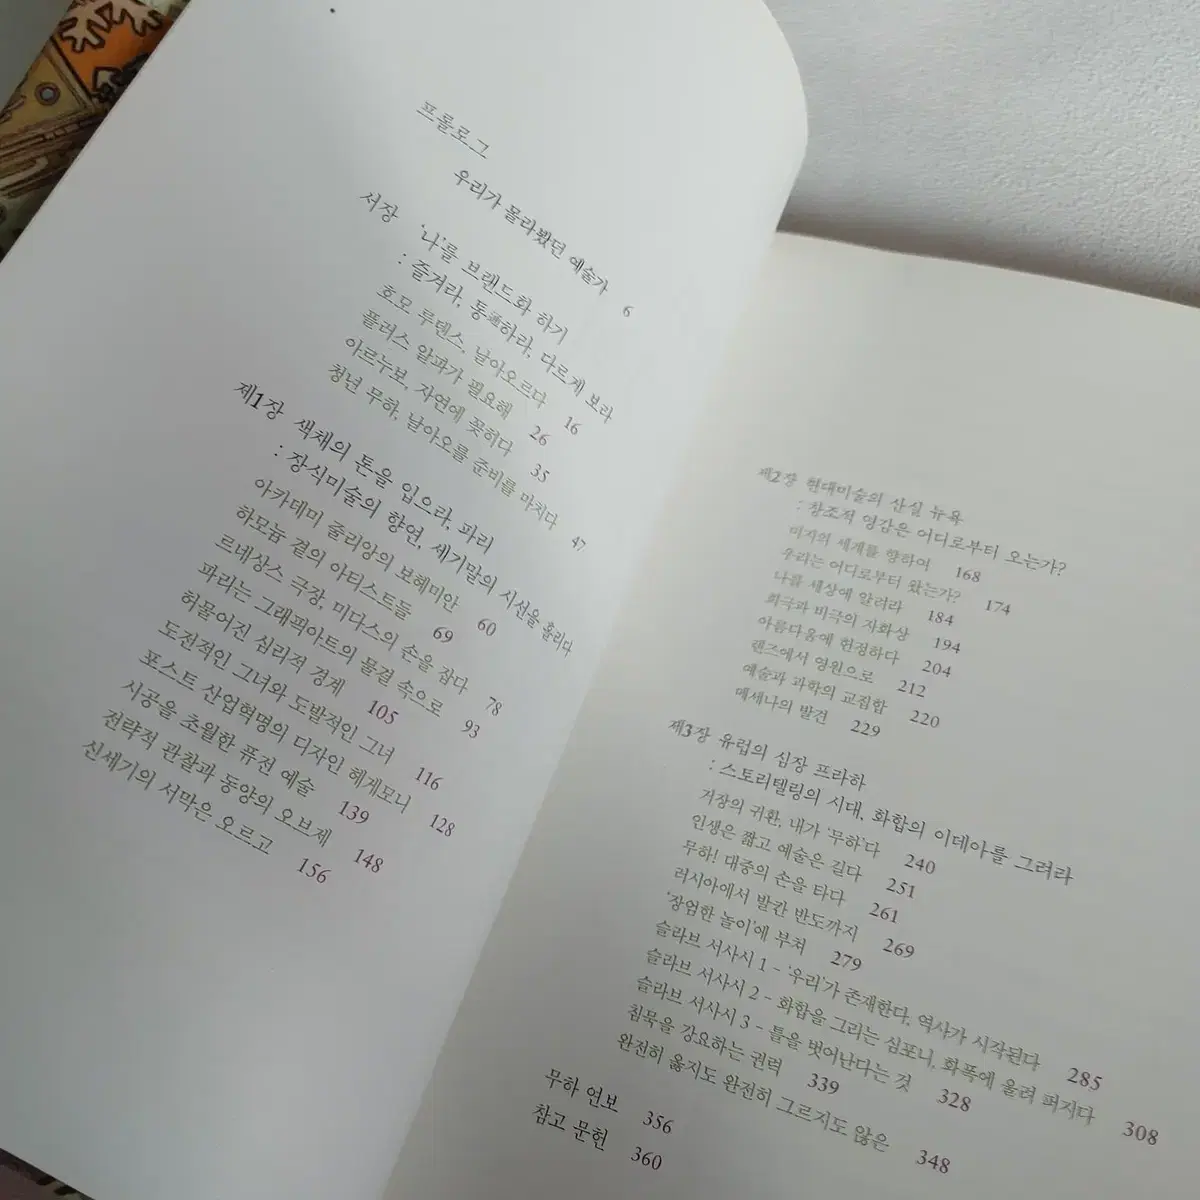 프롤로그
우리가 몰라봤던 예술가 6
서장 '나'를 브랜드화 하기
: 즐겨라, 통通하라, 다르게 보라
호모 루덴스, 날아오르다 16
플러스 알파가 필요해 26
아르누보, 자연에 꽂히다 35
청년 무하, 날아오를 준비를 마치다 47
제1장 색채의 톤을 입으라, 파리
: 장식미술의 향연, 세기말의 시선을 홀리다
아카데미 줄리앙의 보헤미안 60
하모늄 곁의 아티스트들 69
르네상스 극장, 미다스의 손을 잡다 78
파리는 그래픽아트의 물결 속으로 93
허물어진 심리적 경계 105
도전적인 그녀와 도발적인 그녀 116
포스트 산업혁명의 디자인 헤게모니 128
시공을 초월한 퓨전 예술 139
전략적 관찰과 동양의 오브제 148
신세기의 서막은 오르고 156
제2장 현대미술의 산실 뉴욕
: 창조적 영감은 어디로부터 오는가?
미지의 세계를 향하여 168
우리는 어디로부터 왔는가? 174
나를 세상에 알려라 184
희극과 비극의 자화상 194
아름다움에 헌정하다 204
렌즈에서 영원으로 212
예술과 과학의 교집합 220
메세나의 발견 229
제3장 유럽의 심장 프라하
: 스토리텔링의 시대, 화합의 이데아를 그려라
거장의 귀환, 내가 '무하'다 240
인생은 짧고 예술은 길다 251
무하! 대중의 손을 타다 261
러시아에서 발칸 반도까지 269
'장엄한 놀이'에 부쳐 279
슬라브 서사시 1 - '우리'가 존재한다, 역사가 시작된다 285
슬라브 서사시 2 - 화합을 그리는 심포니, 화폭에 울려 퍼지다 308
슬라브 서사시 3 - 틀을 벗어난다는 것 328
침묵을 강요하는 권력 339
완전히 옳지도 완전히 그르지도 않은 348
무하 연보 356
참고 문헌 360